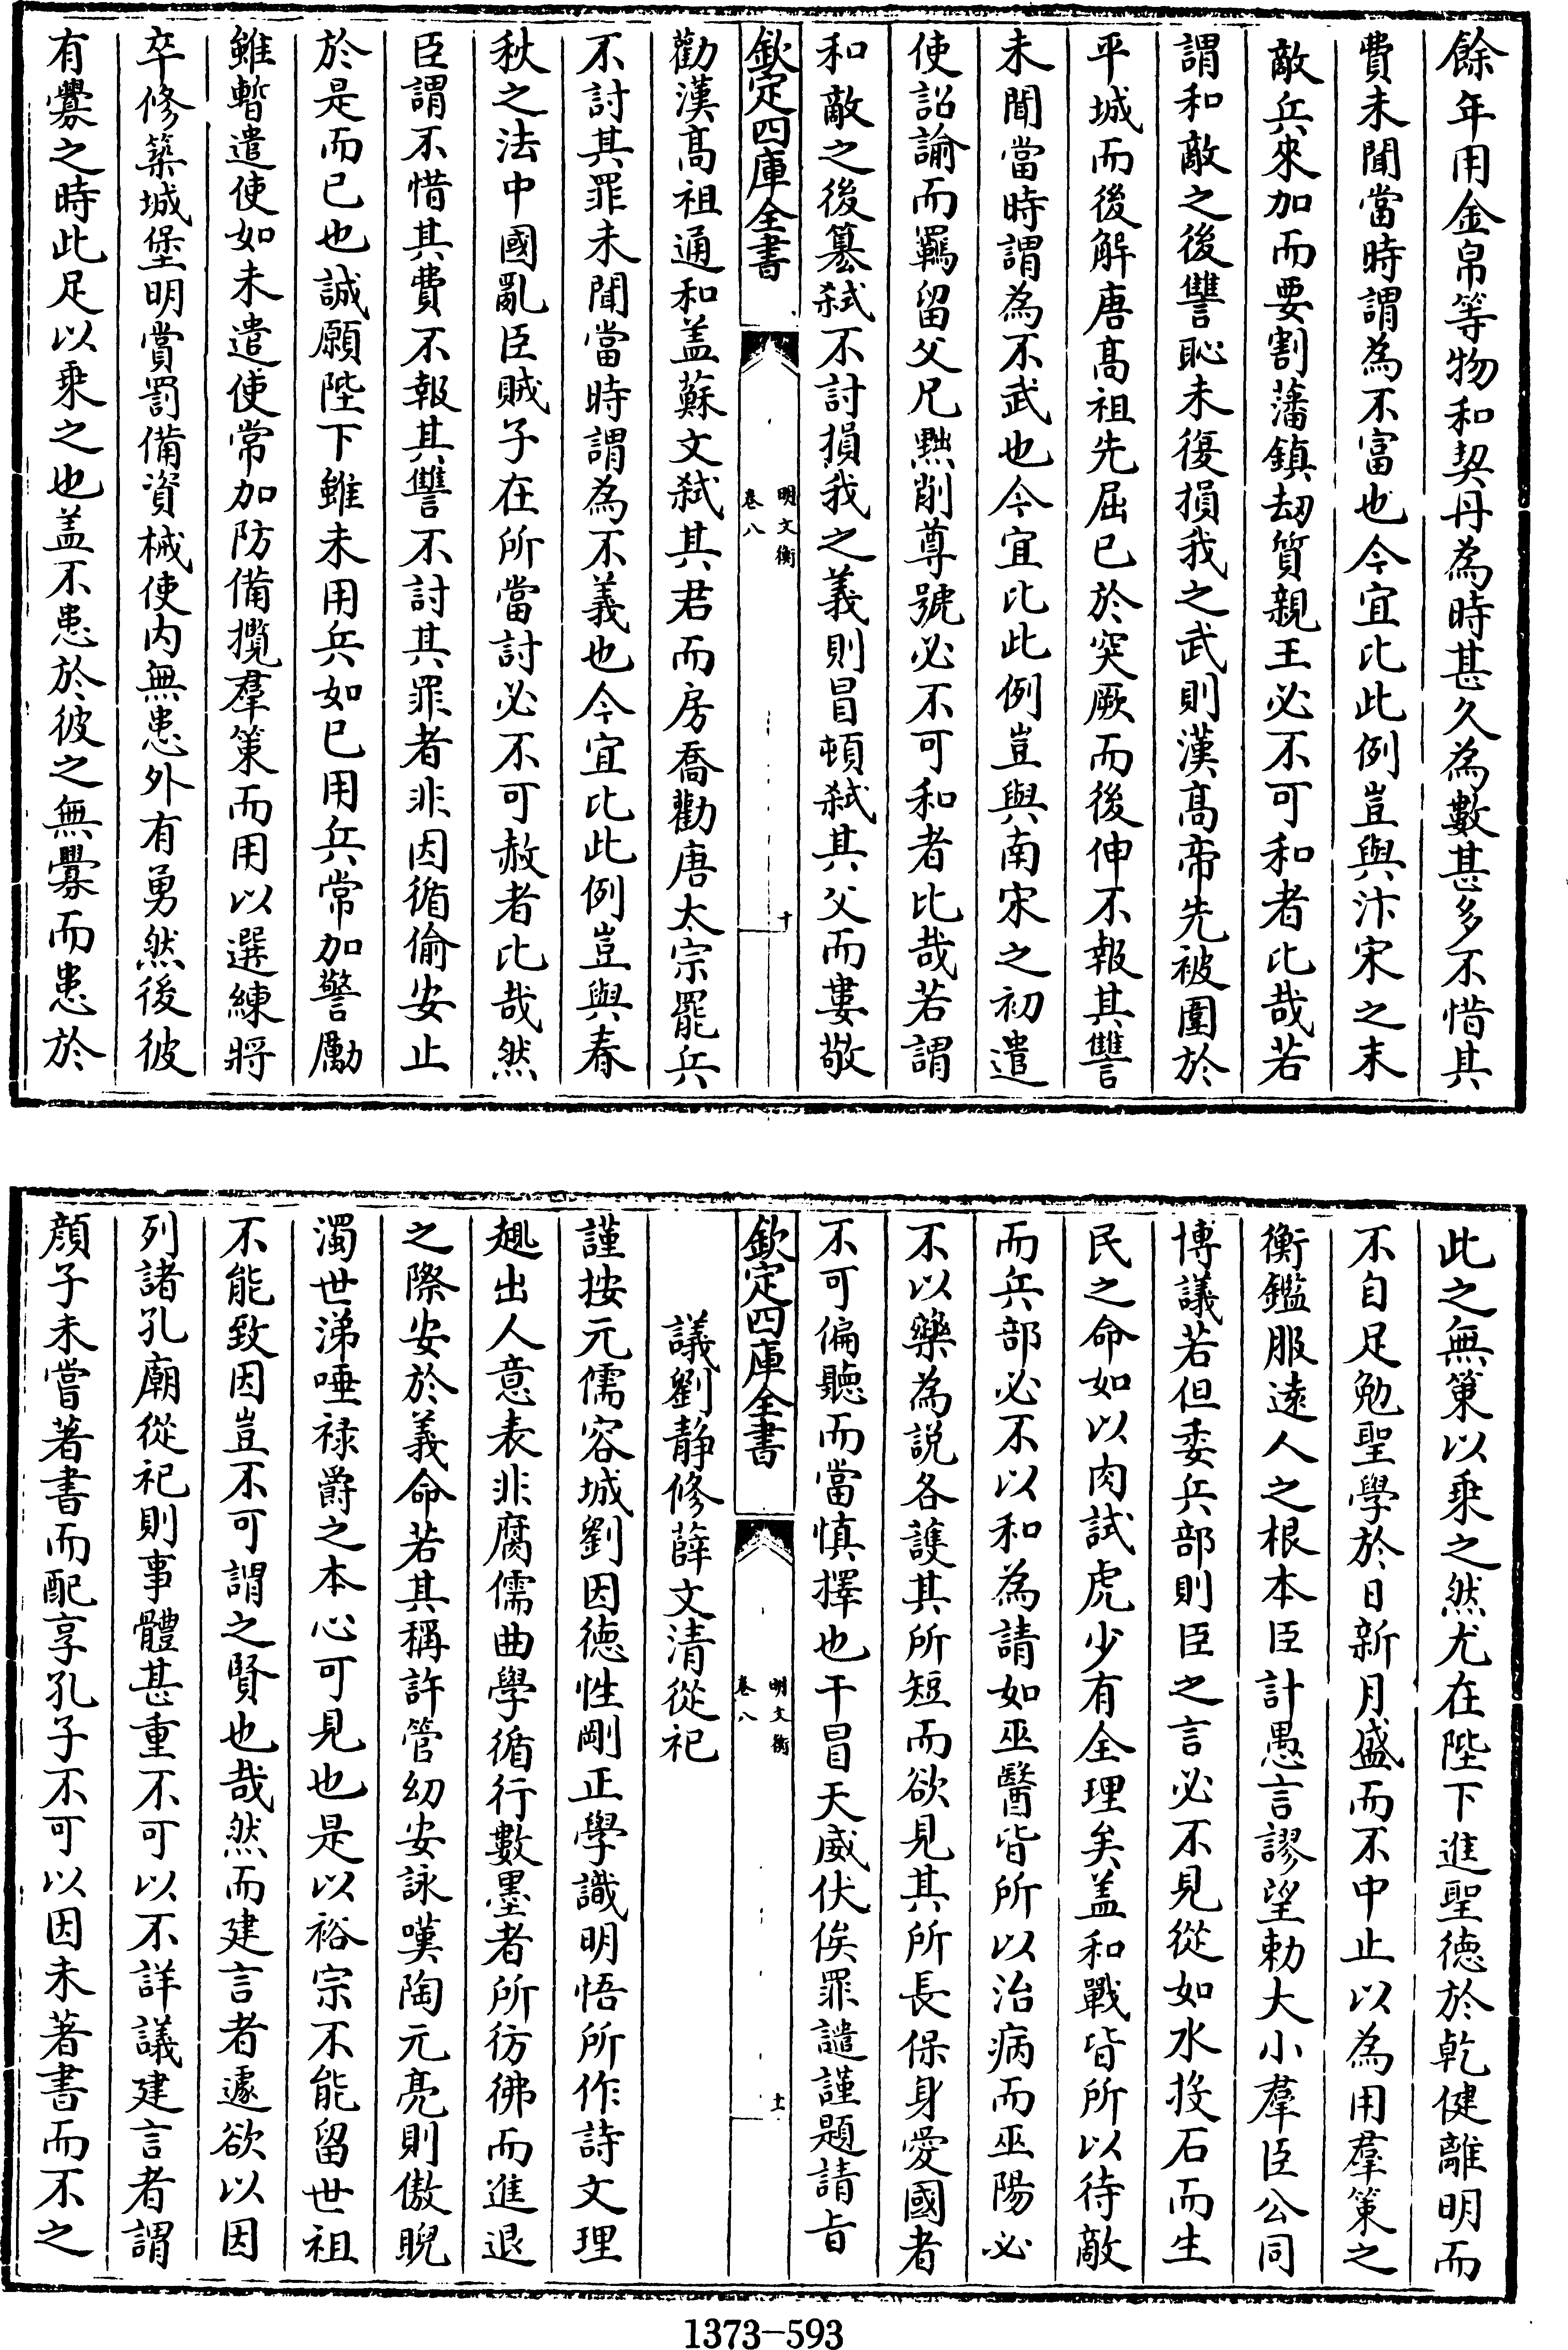 餘年用金帛等物和契丹為時甚久為數甚多不惜其
費未聞當時謂為不富也今宜比此例豈與汴宋之末
敵兵來加而要割藩鎮刼質親王必不可和者比哉若
謂和敵之後讐恥未復損我之武則漢髙帝先被圍於
平城而後解唐髙祖先屈已於突厥而後伸不報其讐
未聞當時謂為不武也今宜比此例豈與南宋之初遣
使詔諭而羈留父兄黜削尊號必不可和者比哉若謂
和敵之後簒弑不討損我之義則冒頓弑其父而婁敬
欽定四庫全書
明文衡
卷八
十
勸漢髙祖通和盖蘇文弑其君而房喬勸唐太宗罷兵
不討其罪未聞當時謂為不義也今宜比此例豈與春
秋之法中國亂臣賊子在所當討必不可赦者比哉然
臣謂不惜其費不報其讐不討其罪者非因循偷安止
於是而已也誠願陛下雖未用兵如已用兵常加警勵
雖暫遣使如未遣使常加防備攬羣策而用以選練將
卒修築城堡明賞罰備資械使内無患外有勇然後彼
有釁之時此足以乗之也盖不患於彼之無釁而患於
此之無策以乗之然尤在陛下進聖徳於乾健離明而
不自足勉聖學於日新月盛而不中止以為用羣策之
衡鑑服逺人之根本臣計愚言謬望勅大小羣臣公同
博議若但委兵部則臣之言必不見從如水投石而生
民之命如以肉試虎少有全理矣盖和戰皆所以待敵
而兵部必不以和為請如巫醫皆所以治病而巫陽必
不以藥為説各護其所短而欲見其所長保身愛國者
不可偏聽而當慎擇也干冒天威伏俟罪譴謹題請㫖
欽定四庫全書
明文衡
卷八
十一
議劉静修薛文清從祀
謹按元儒容城劉因徳性剛正學識明悟所作詩文理
趣出人意表非腐儒曲學循行數墨者所彷彿而進退
之際安於義命若其稱許管幼安詠嘆陶元亮則傲睨
濁世涕唾祿爵之本心可見也是以裕宗不能留世祖
不能致因豈不可謂之賢也哉然而建言者遽欲以因
列諸孔廟從祀則事體甚重不可以不詳議建言者謂
顔子未嘗著書而配享孔子不可以因未著書而不之
1373-593